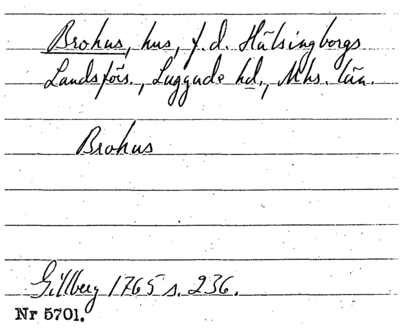 Brohus, hus, f.d. Hälsingborgs
Landsförs., Luggude hd., Mhs. län.
Brohus
Gillberg 1765 s. 236.
Nr 5701.